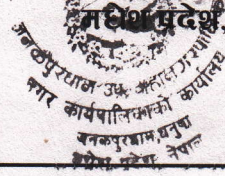 मधेश प्रदेश,
जनकपुरधाम उप महानगरपालिका
नगर कार्यपालिकाको कार्यालय
जनकपुरधाम, धनुषा
मधेश प्रदेश नेपाल